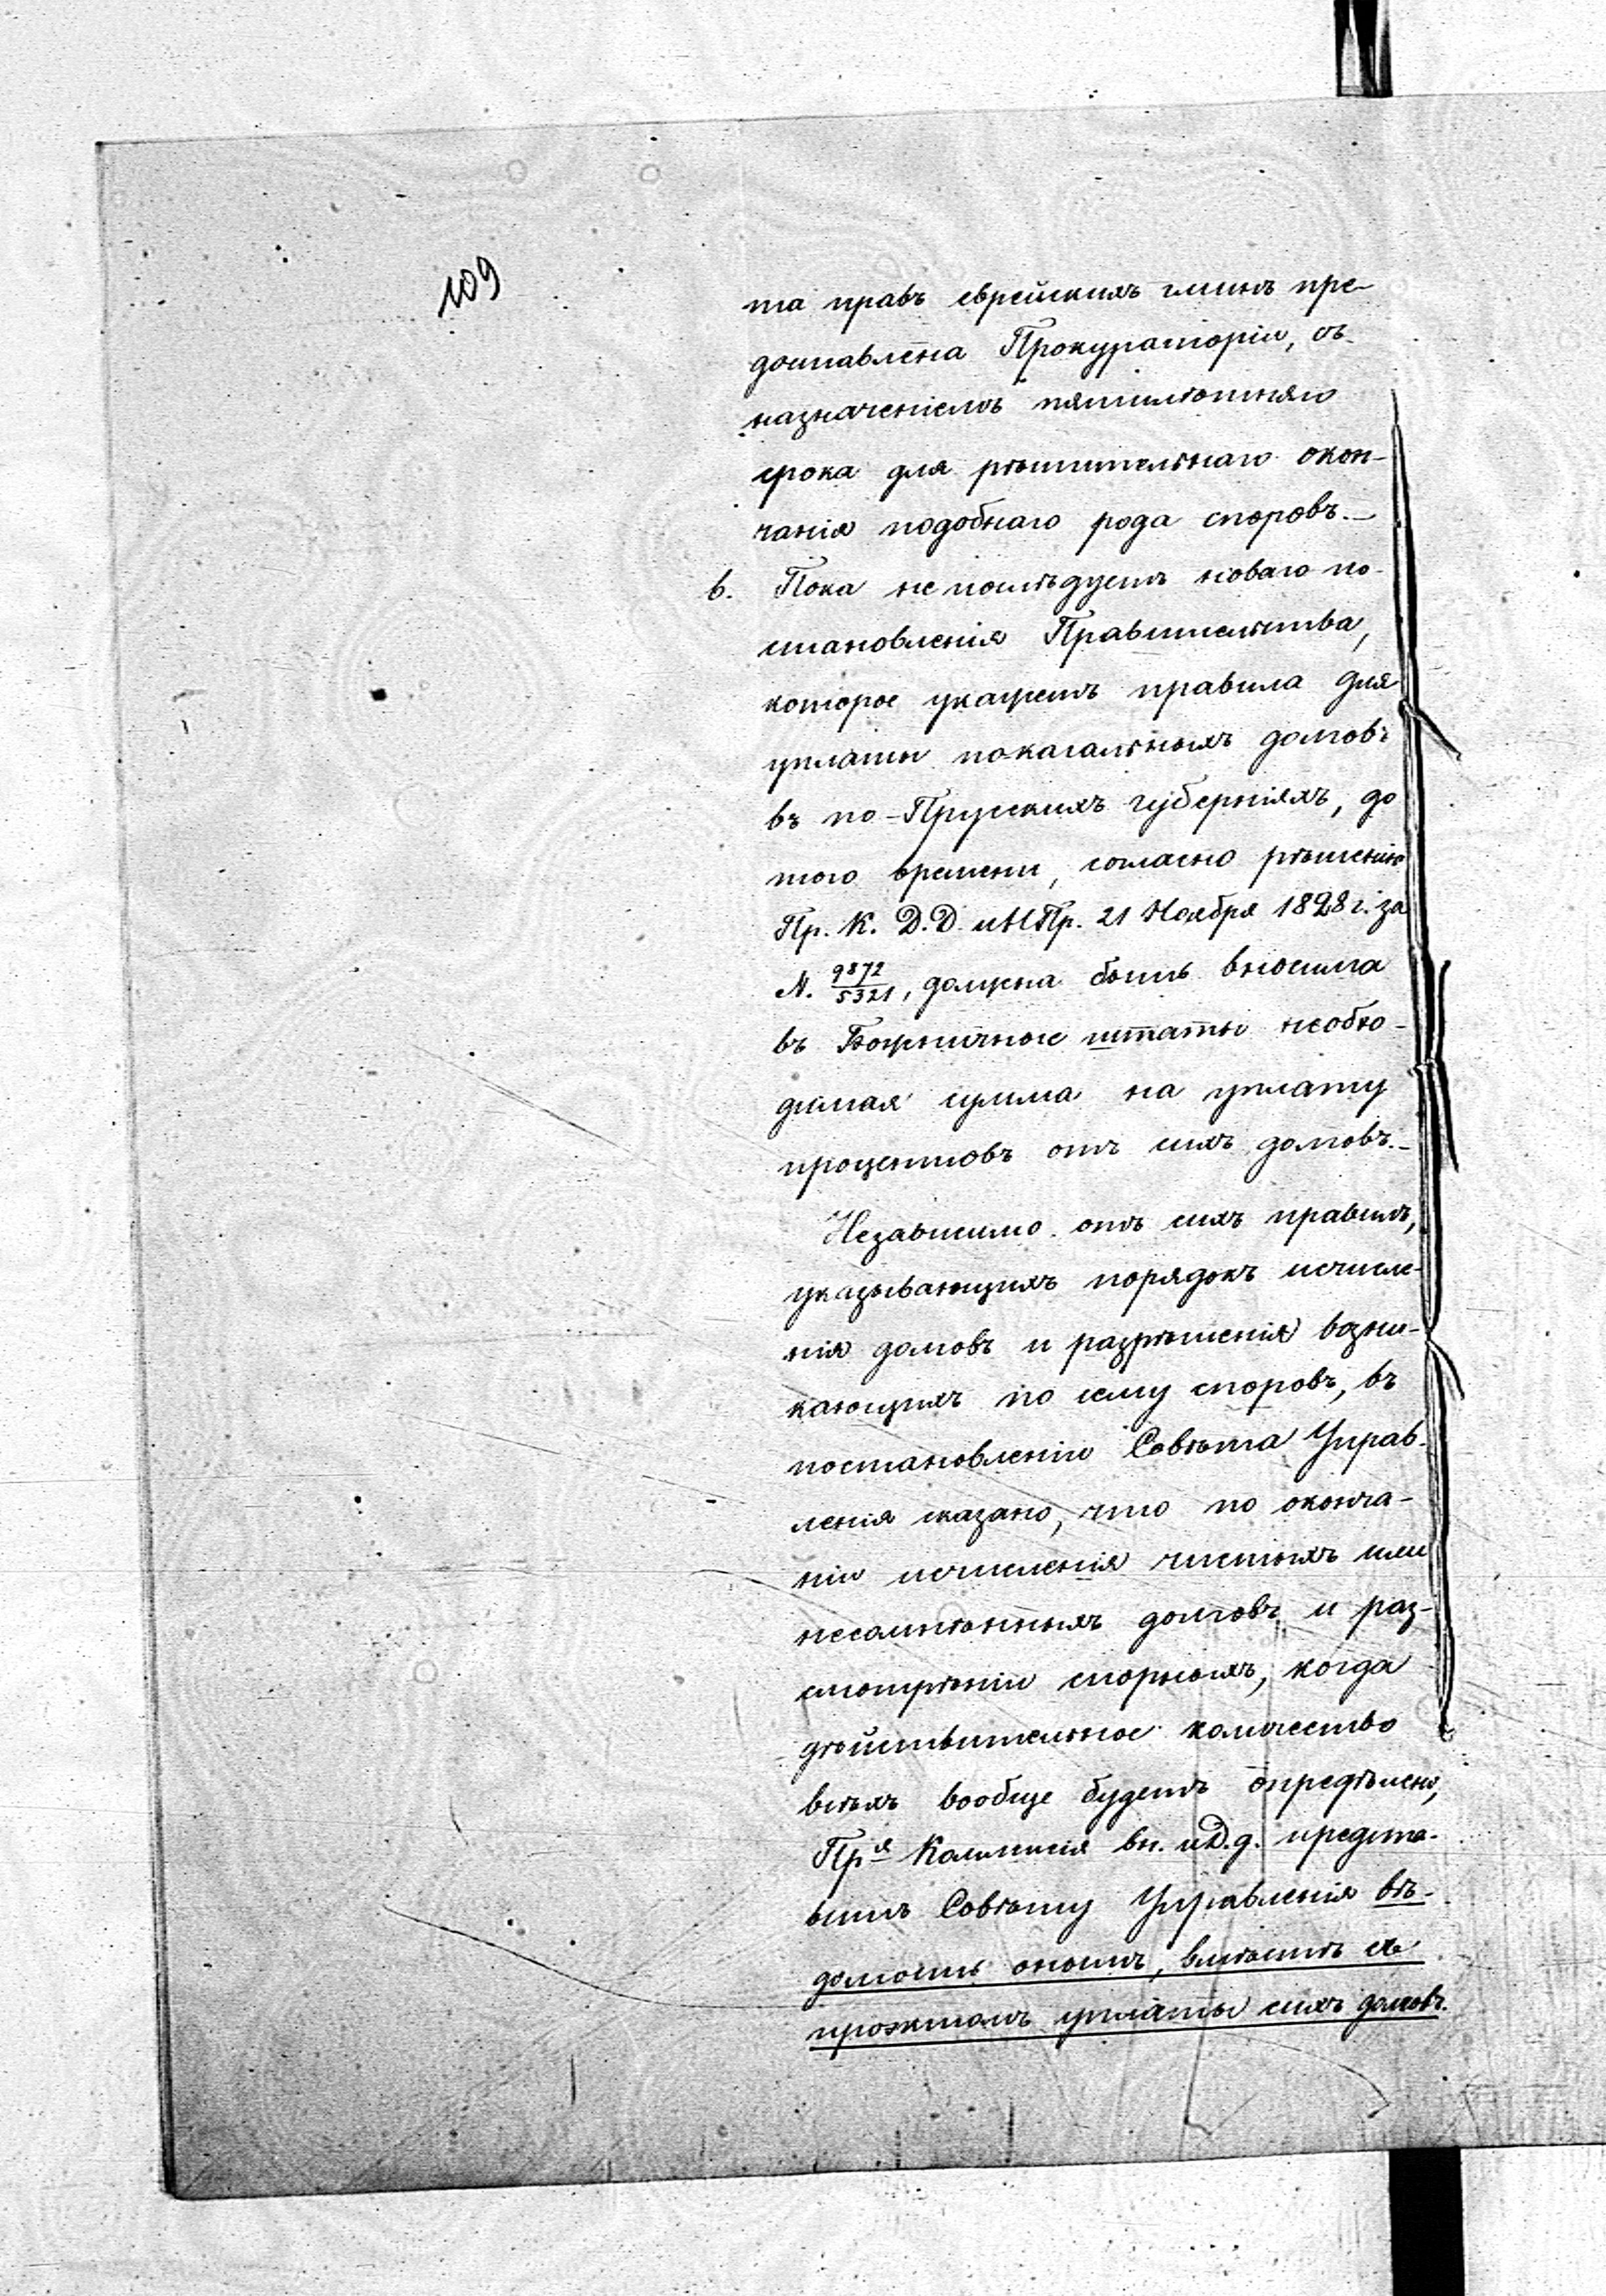 109
та правъ еврейскихъ гминъ пре-
доставлена Прокураторіи, съ
назначеніемъ пятилѣтняго
срока для рѣшительнаго окон-
чанія подобнаго рода споровъ.—
в. Пока не послѣдуетъ новаго по-
становленія Правительства,
которое укажетъ правила для
уплаты по-кагальныхъ долговъ
въ по-Прусскихъ губерніяхъ, до
того времени, согласно рѣшенію
Пр. К. Д. Д. и Н Пр. 21 Ноября 1828 г. за
N. 9872/5321, должна быть вносима
въ Божничные штаты необхо-
димая сумма на уплату
процентовъ отъ сихъ долговъ.—
Независимо отъ сихъ правилъ,
указывающихъ порядокъ исчисле-
нія долговъ и разрѣшенія возни-
кающихъ по сему споровъ, въ
постановленіи Совѣта Управ-
ленія сказано, что по оконча-
ніи исчисленія чистыхъ или
несомнѣнныхъ долговъ и раз-
смотрѣніи спорныхъ, когда
дѣйствительное количество
всѣхъ вообще будетъ опредѣлено,
Пр.я Коммисія вн. и Д. д. предста-
витъ Совѣту Управленія вѣ-
домость онымъ, вмѣстѣ съ
проэктомъ уплаты сихъ долговъ.